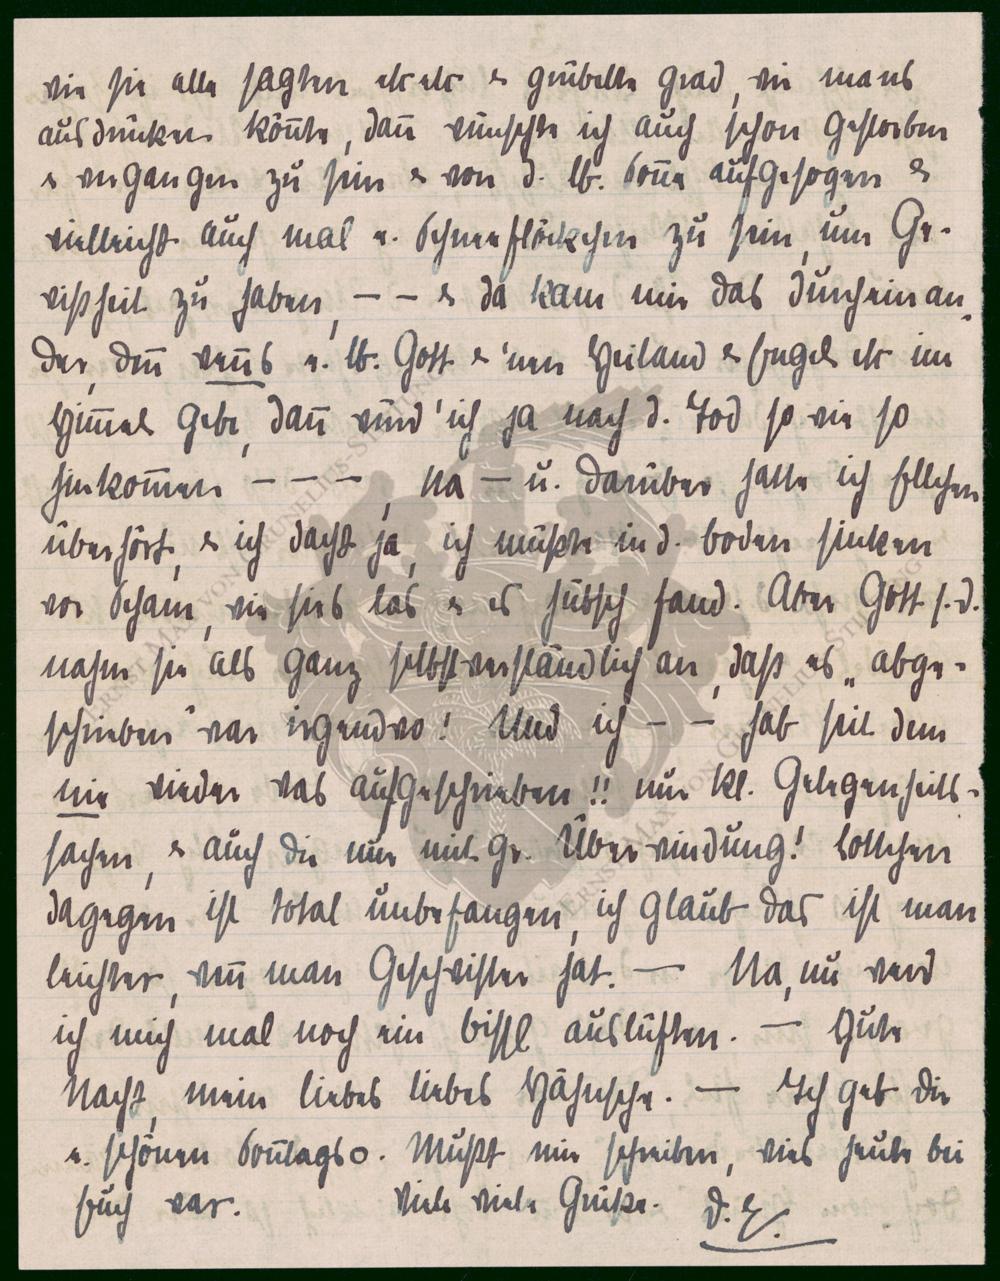 wie sie alle sagten etc etc & grübelte grad, wie mans
ausdrücken kön̄te, dan̄ wünschte ich auch schon gestorben
& vergangen zu sein & von d. lb. Son̄e aufgesogen &
vielleicht auch mal e. Schneeflöckchen zu sein, um Ge-
wißheit zu haben, – – & da kam mir das durcheinan-
der, den̄ wen̄s e. lb. Gott & 'nen Heiland & Engel etc im
Him̄el gebe, dan̄ würd' ich ja nach d. Tod so wie so
hinkom̄en – – –, Na – u. darüber hatte ich Ellchen
überhört, & ich dacht ja, ich müßte in d. boden sinken
vor Scham, wie sies las & es hübsch fand. Aber Gott s. d.
nahm sie als ganz selbstverständlich an, daß es „abge-
schrieben" war irgendwo! Und ich – – hab seit dem
nie wieder was aufgeschrieben!! nur kl. Gelegenheits-
sachen, & auch die nur mit gr. Überwindung! Lottchen
dagegen ist total unbefangen, ich glaub das ist man
leichter, wen̄ man Geschwister hat. – Na, nu werd
ich mich mal noch ein bissl auslüften. – Gute
Nacht, mein liebes liebes Hähnsche. – Ich geb Dir
e. schönen Son̄tags o. Mußt mir schreiben, wies heute bei
Euch war. Viele viele Grüße. D. E.
ERNST MAX VON GRUNELIUS-STIFTUNG
ERNST MAX VON GRUNELIUS-STIFTUNG